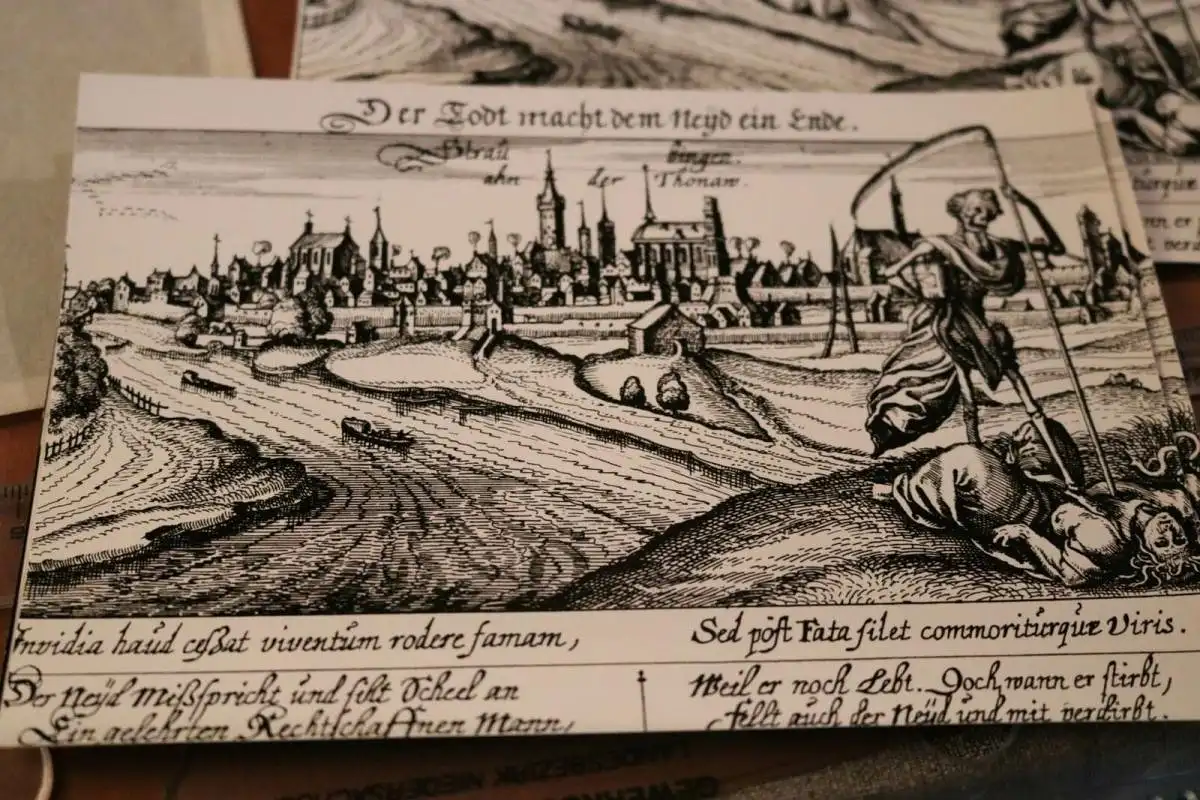 Der Todt macht dem Neÿd ein Ende.
Strau bingen.
ahn der Thonaw.
Invidia haud ceßat viventum rodere famam,
Sed post Fata silet commoriturque Viris.
Der Neÿd Mißspricht und siht Scheel an
Ein gelehrten Rechtschaffnen Mann,
Weil er noch Lebt. Doch wann er stirbt,
fellt auch der Neÿd und mit verdirbt.